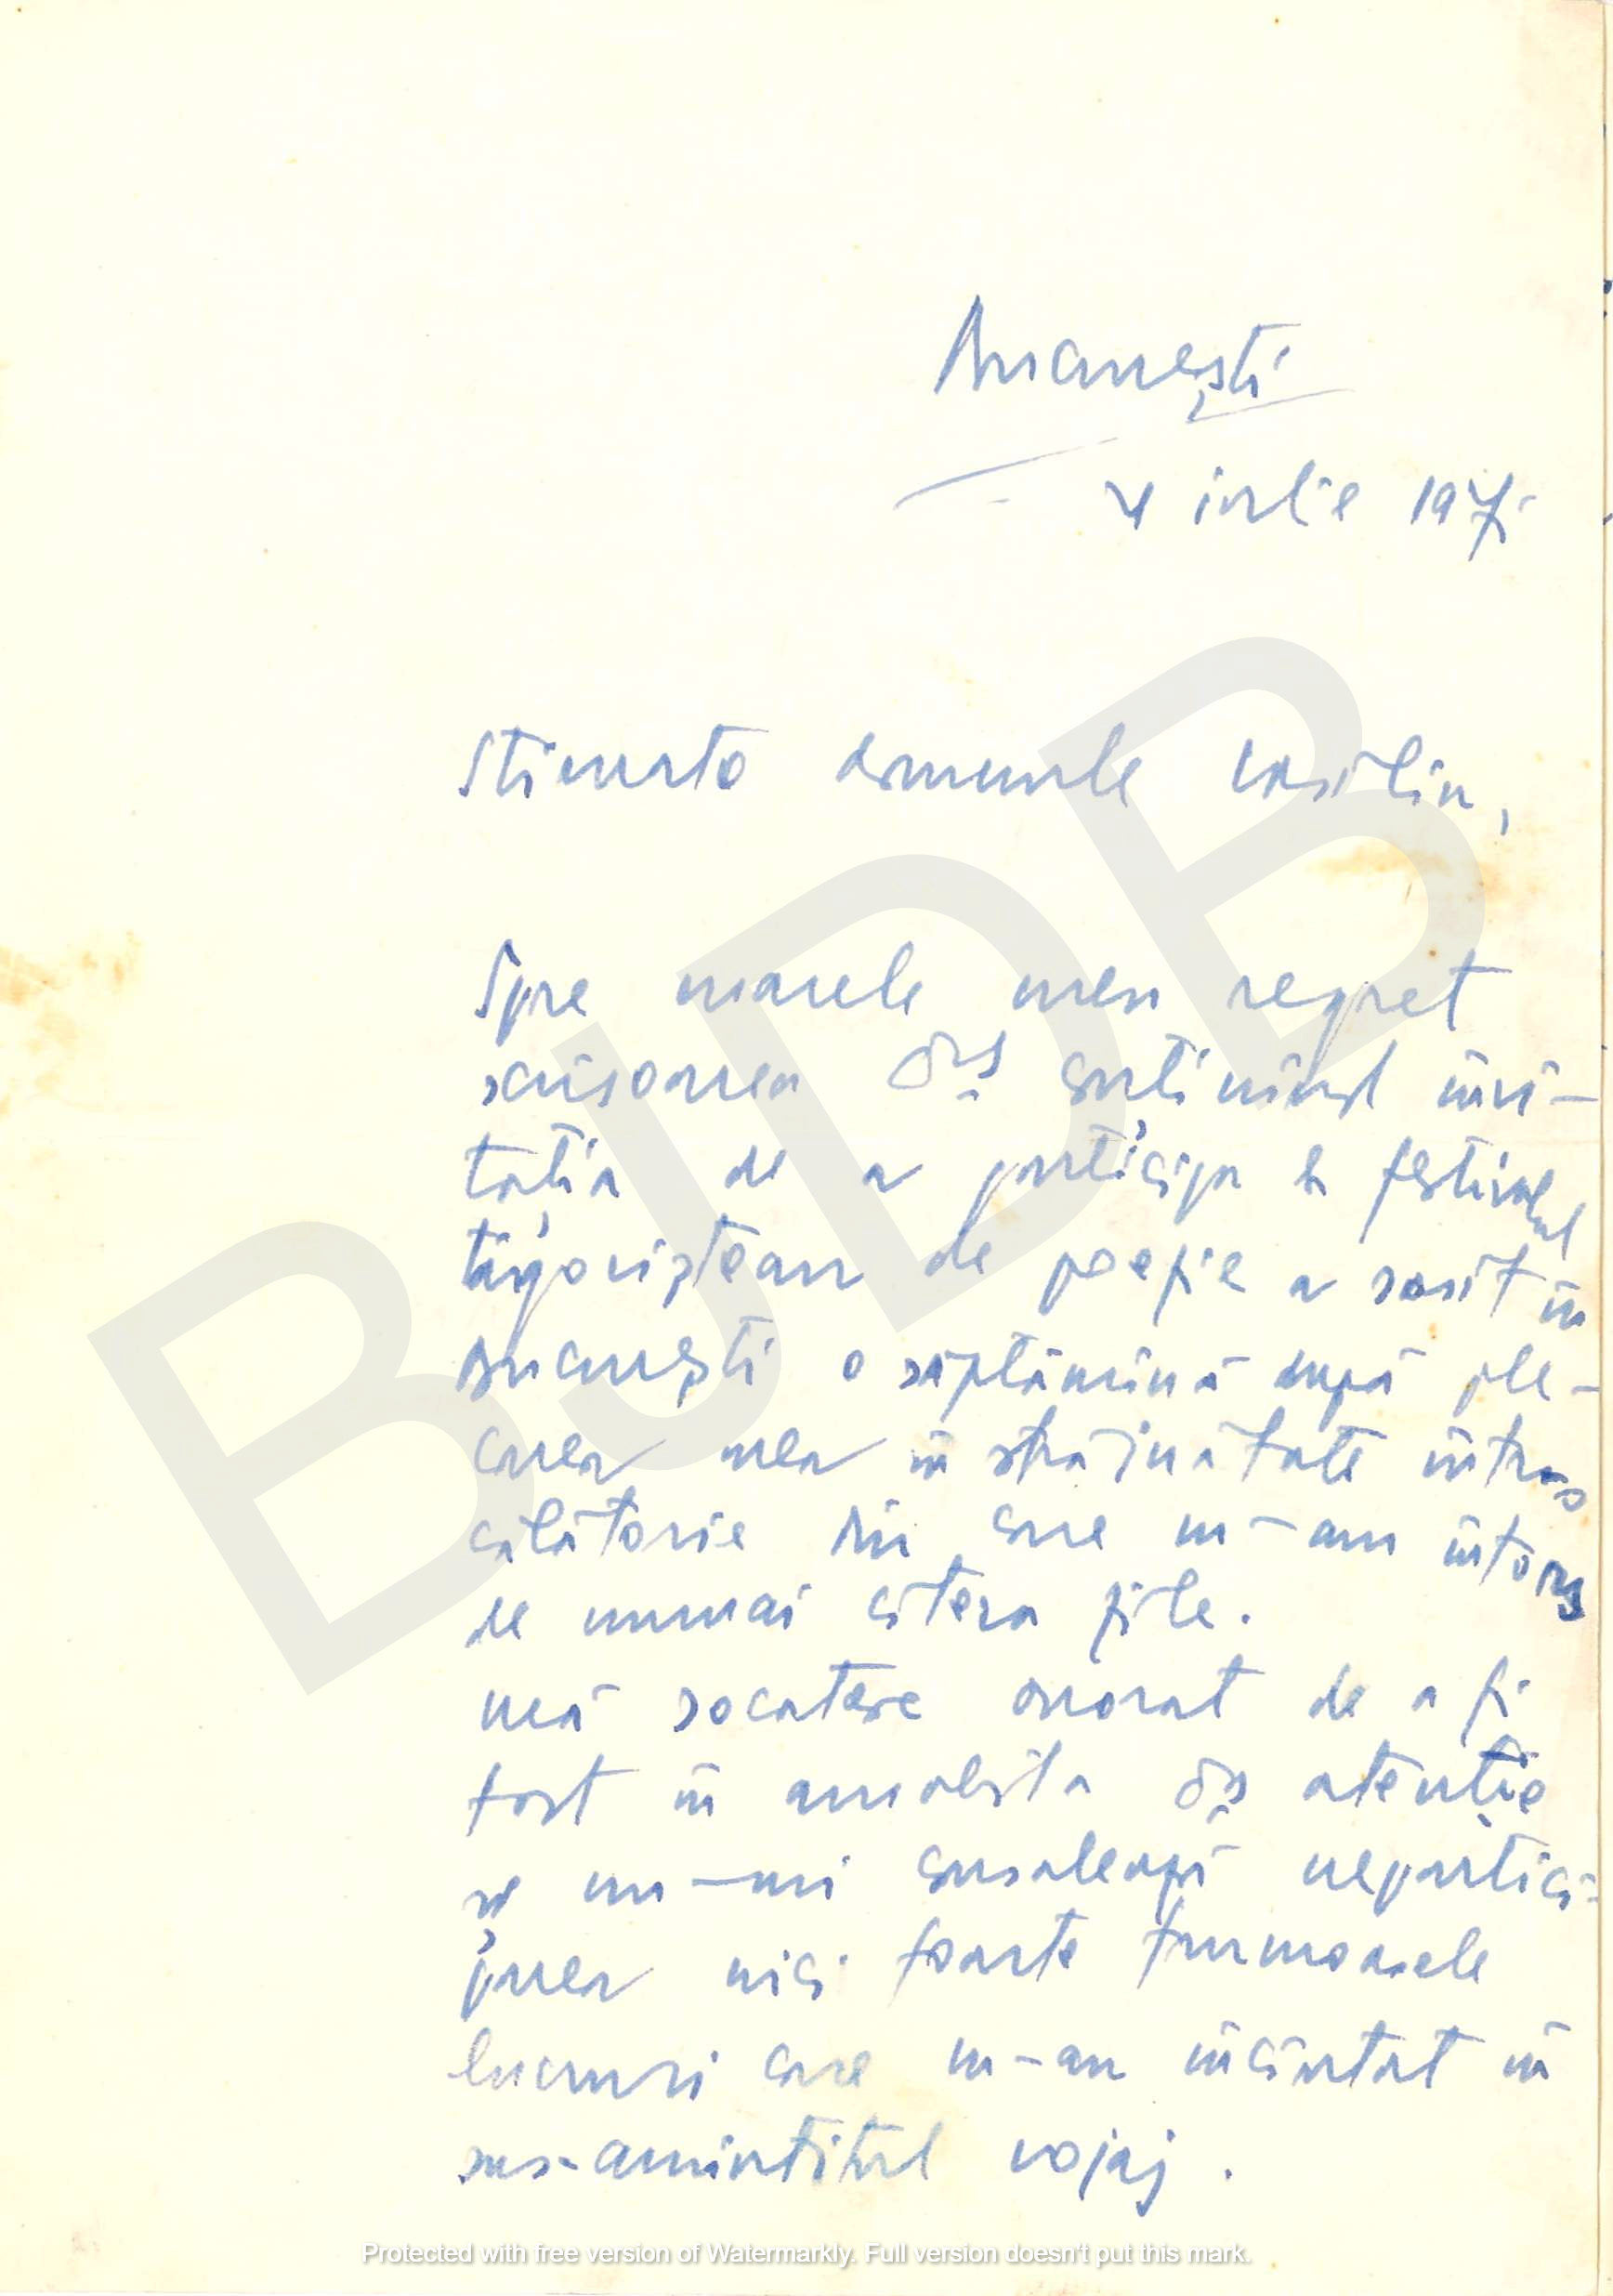 București
4 iulie 197
Stimate domnule Vasiliu,
Spre marele meu regret
scrisoarea dvs conținînd invi-
tația de a participa la festivalul
tîrgoviștean de poezie a sosit în
București o săptămînă după ple-
carea mea în străinătate într-o
călătorie din care m-am întors
de numai cîteva zile.
Mă socotesc onorat de a fi
fost în amabila dvs atenție
și nu-mi consolează neportici-
parea nici foarte frumoasele
lucruri care m-au încîntat în
sus-amintitul voiaj.
BJDB
Protected with free version of Watermarkly. Full version doesn't put this mark.